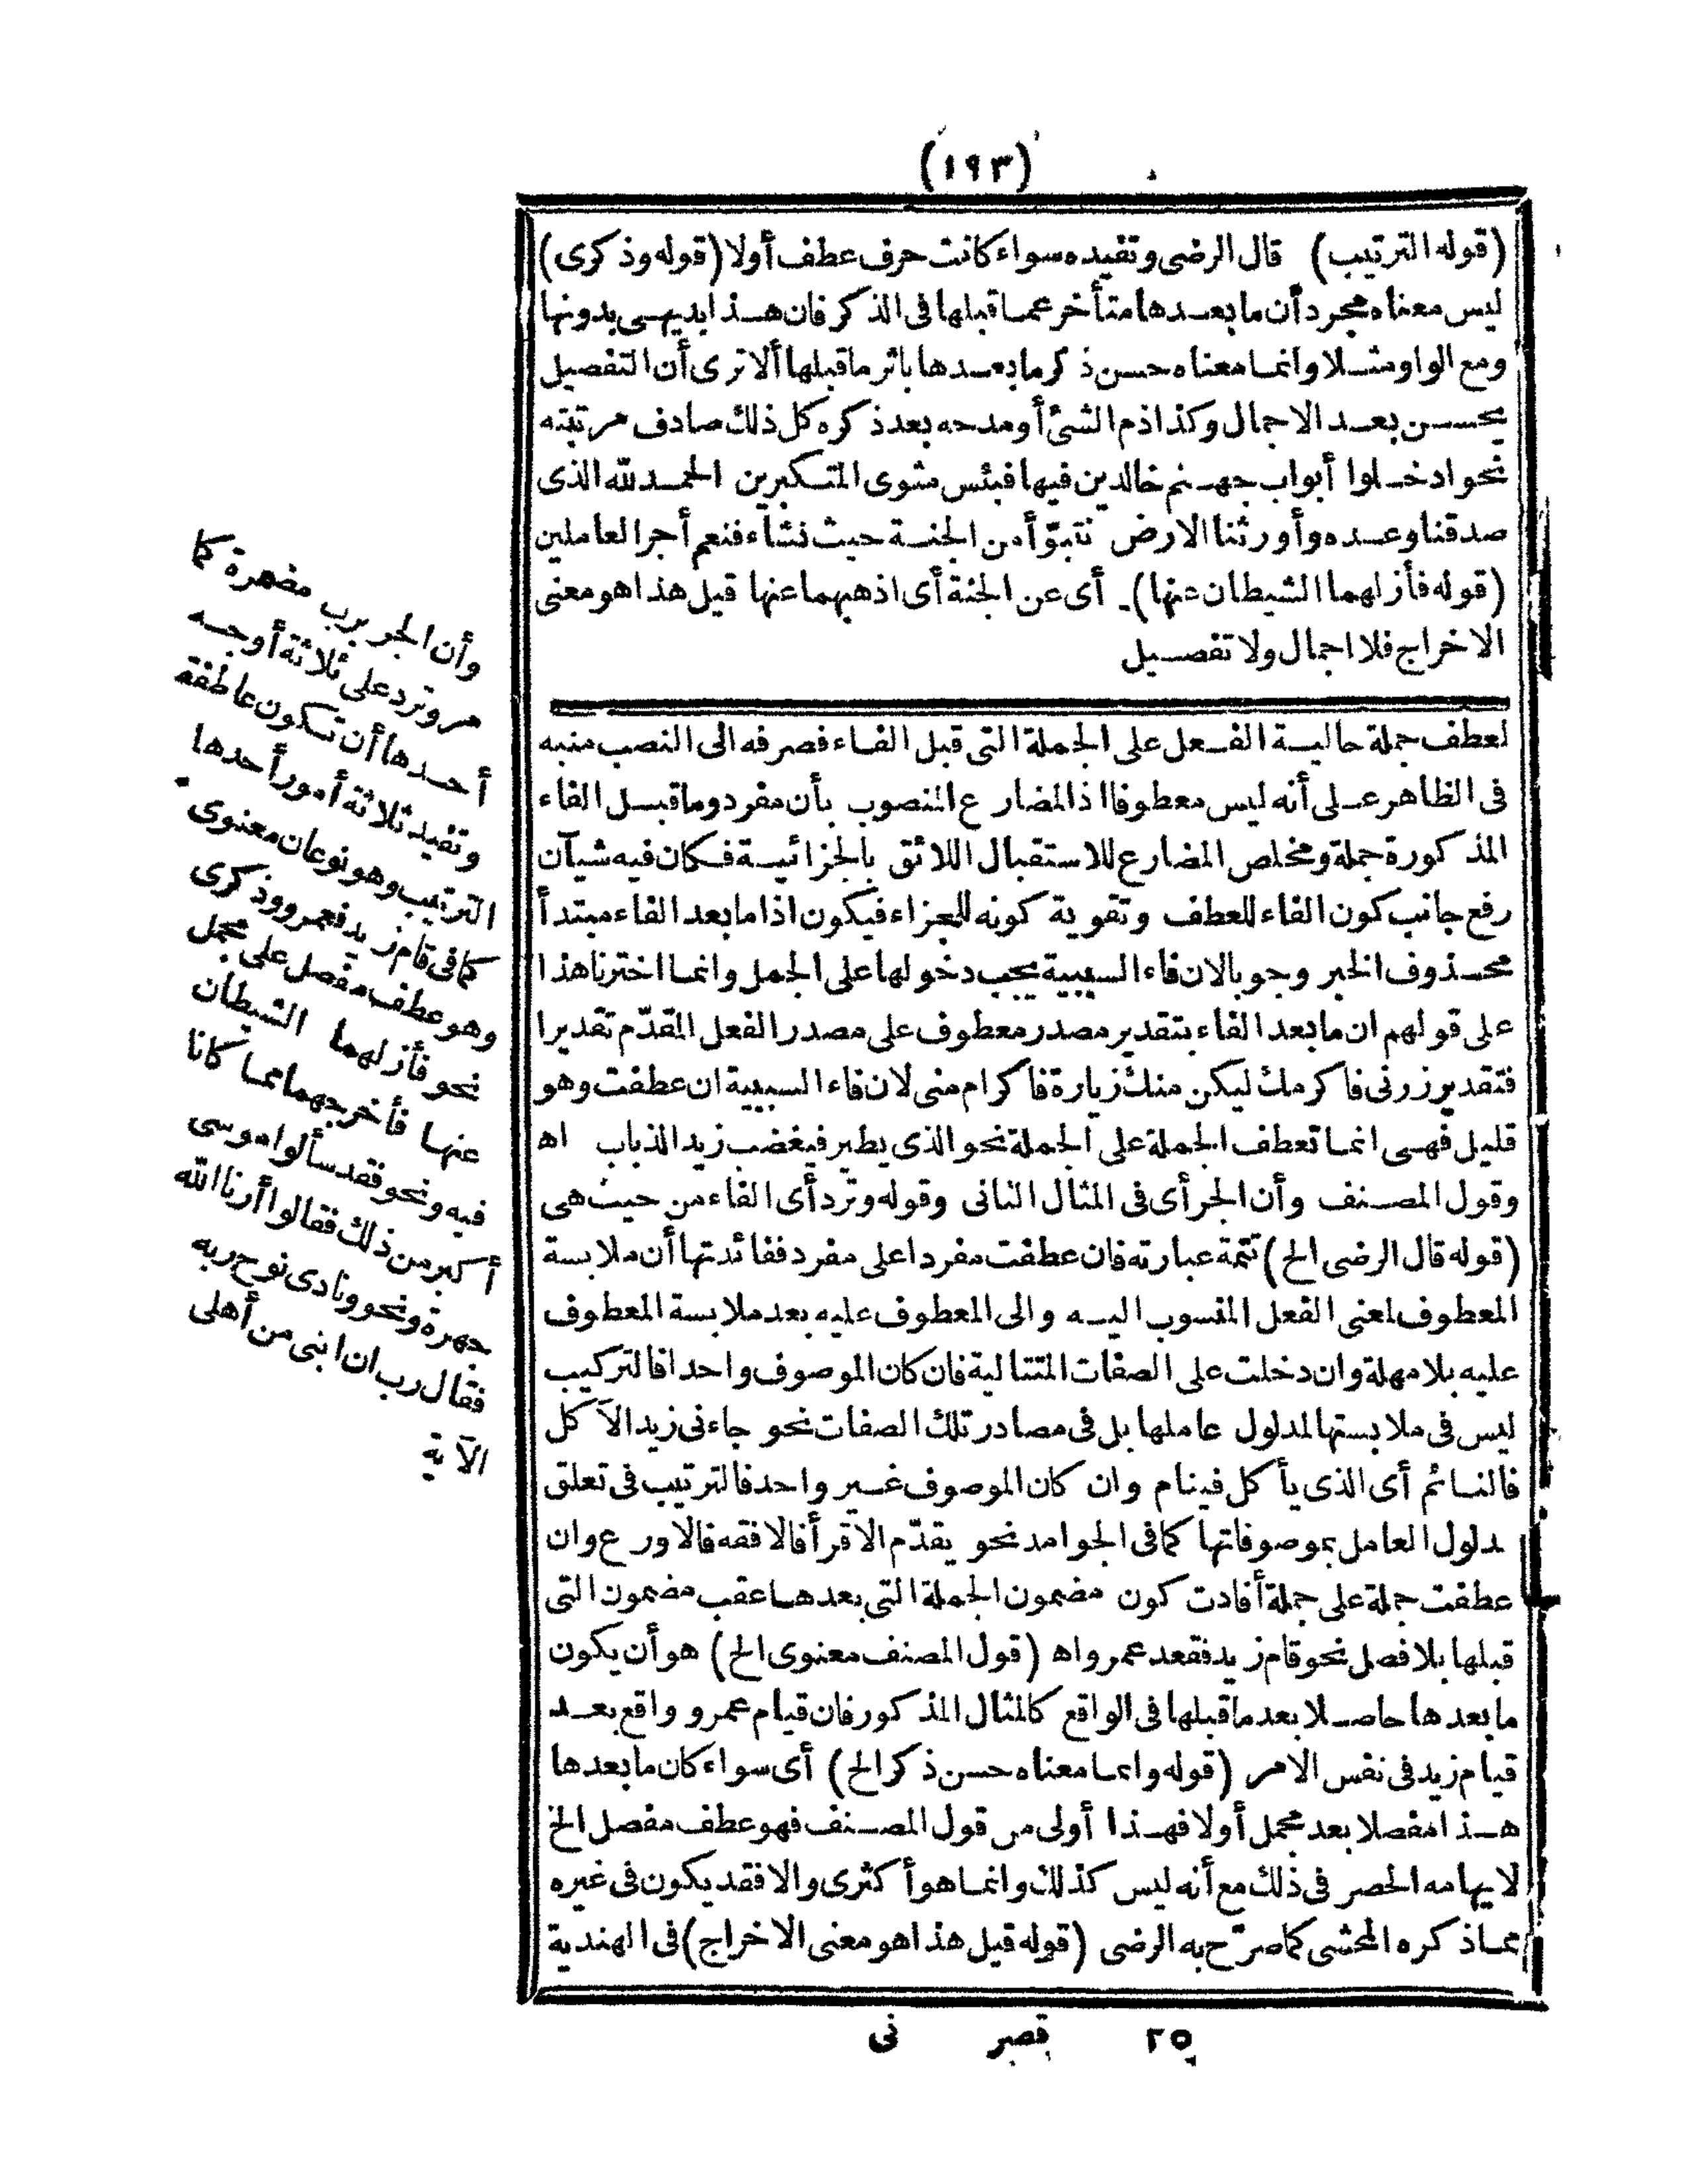 (١٩٣)
(قوله الترتيب) قال الرضى وتفيده سواء كانت حرف عطف أولا (قوله وذكرى)
ليس معناه مجرد أن ما بعدها متأخر عما قبلها فى الذكر فان هذا بديهى بدونها
ومع الواو مثلا وانما معناه حسن ذكر ما بعدها باثر ما قبلها ألا ترى أن التفصيل
يحسن بعد الاجمال وكذا ذم الشئ أو مدحه بعد ذكره كل ذلك صادف مرتبته
نحو ادخلوا أبواب جهنم خالدين فيها فبئس مثوى المتكبرين الحمد لله الذى
صدقنا وعده وأورثنا الارض نتبوّأ من الجنة حيث نشاء فنعم أجر العاملين
(قوله فأزلهما الشيطان عنها). أى عن الجنة أى اذهبهما عنها قيل هذا هو معنى
الاخراج فلا اجمال ولا تفصيل
لعطف جملة حالية الفعل على الجملة التى قبل الفاء فصرفه الى النصب منبه
فى الظاهر على أنه ليس معطوفا اذ المضارع المنصوب بأن مفرد وما قبل الفاء
المذكورة جملة ومخلص المضارع للاستقبال اللائق بالجزائية فكان فيه شيآن
رفع جانب كون الفاء للعطف وتقوية كونه للجزاء فيكون اذا ما بعد الفاء مبتدأ
محذوف الخبر وجوبا لان فاء السببية يجب دخولها على الجمل وانما اخترنا هذا
على قولهم ان ما بعد الفاء بتقدير مصدر معطوف على مصدر الفعل المقدّم تقديرا
فتقدير زرنى فاكرمك ليكن منك زيارة فاكرام منى لان فاء السببية ان عطفت وهو
قليل فهى انما تعطف الجملة على الجملة نحو الذى يطير فيغضب زيد الذباب اه
وقول المصنف وأن الجر أى فى المثال الثانى وقوله وترد أى الفاء من حيث هى
(قوله قال الرضى الخ) تتمة عبارته فان عطفت مفردا على مفرد ففائدتها أن ملابسة
المعطوف لمعنى الفعل المنسوب اليه والى المعطوف عليه بعد ملابسة المعطوف
عليه بلا مهلة وان دخلت على الصفات المتتالية فان كان الموصوف واحدا فالتركيب
ليس فى ملابستها لمدلول عاملها بل فى مصادر تلك الصفات نحو جاءنى زيد الآكل
فالنائم أى الذى يأكل فينام وان كان الموصوف غير واحد فالترتيب فى تعلق
مدلول العامل بموصوفاتها كما فى الجوامد نحو يقدّم الاقرأ فالافقه فالاورع وان
عطفت جملة على جملة أفادت كون مضمون الجملة التى بعدها عقب مضمون التى
قبلها بلا فصل نحو قام زيد فقعد عمرو اه (قول المصنف معنوى الخ) هو أن يكون
ما بعدها حاصلا بعد ما قبلها فى الواقع كالمثال المذكور فان قيام عمرو واقع بعد
قيام زيد فى نفس الامر (قوله وانما معناه حسن ذكر الخ) أى سواء كان ما بعدها
هذا مفصلا بعد مجمل أولا فهذا أولى من قول المصنف فهو عطف مفصل الخ
لايهامه الحصر فى ذلك مع أنه ليس كذلك وانما هو أكثرى والا فقد يكون فى غيره
مما ذكره المحشى كما صرّح به الرضى (قوله قيل هذا هو معنى الاخراج) فى الهندية
٢٥ قصر نى
وأن الجر برب مضمرة كما
مر وترد على ثلاثة أوجه
أحدها أن تكون عاطفة
وتفيد ثلاثة أمور أحدها
الترتيب وهو نوعان معنوى
كما فى قام زيد فعمرو وذكرى
وهو عطف مفصل على مجمل
نحو فأزلهما الشيطان
عنها فأخرجهما مما كانا
فيه ونحو فقد سألوا موسى
أكبر من ذلك فقالوا أرنا الله
جهرة ونحو ونادى نوح ربه
فقال رب ان ابنى من أهلى
الآية